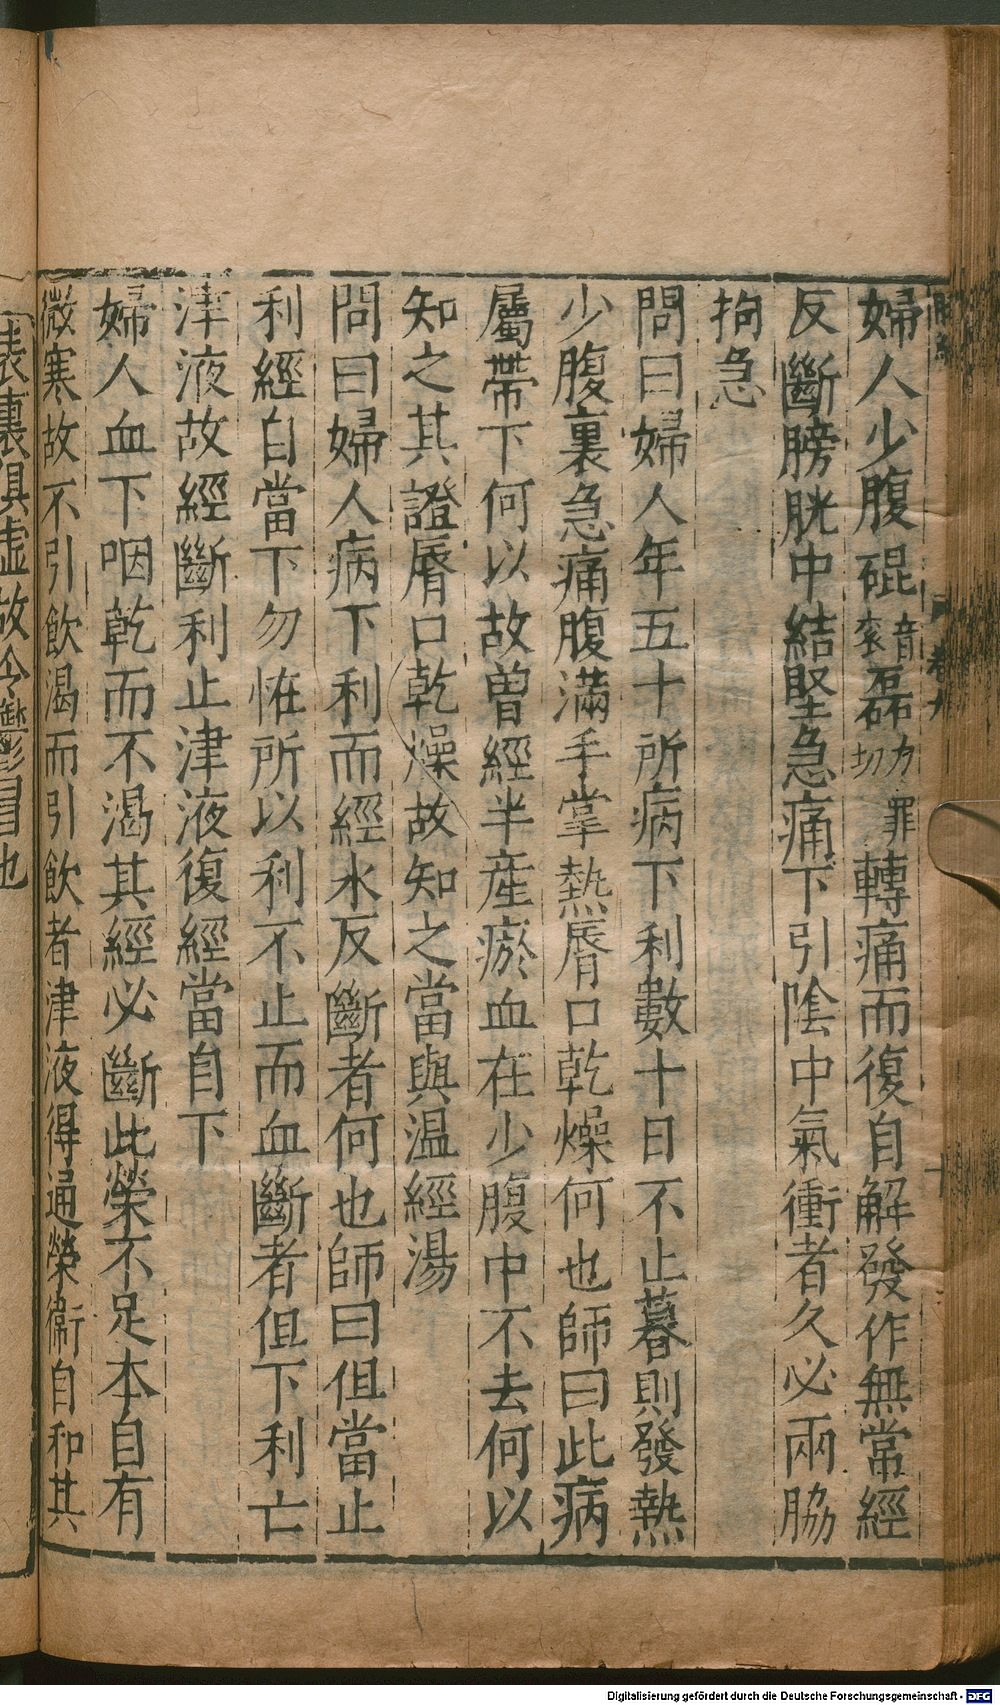 婦人少腹硍音衮磊力罪切轉痛而復自解發作無常經
反斷膀胱中結堅急痛下引陰中氣衝者久必兩脇
拘急
問曰婦人年五十所病下利數十日不止暮則發熱
少腹裏急痛腹滿手掌熱唇口乾燥何也師曰此病
屬帶下何以故曾經半産瘀血在少腹中不去何以
知之其證唇口乾燥故知之當與温經湯
問曰婦人病下利而經水反斷者何也師曰但當止
利經自當下勿怪所以利不止而血斷者但下利亡
津液故經斷利止津液復經當自下
婦人血下咽乾而不渴其經必斷此榮不足本自有
微寒故不引飲渴而引飲者津液得通榮衞自和其
表裏俱虚故令鬱冒也
卷九
十
Digitalisierung gefördert durch die Deutsche Forschungsgemeinschaft - DFG